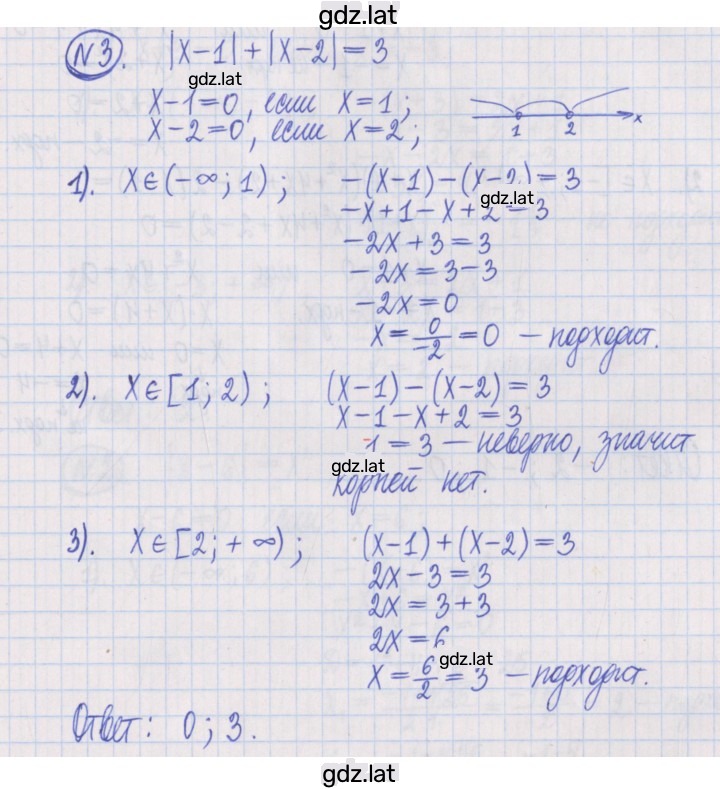 gdz.lat
№3. |x-1|+|x-2|=3
gdz.lat
x-1=0, если x=1;
x-2=0, если x=2;
1 2 x
1). x∈(-∞; 1); -(x-1)-(x-2)=3
gdz.lat
-x+1-x+2=3
-2x+3=3
-2x=3-3
-2x=0
x=0/-2=0 - подходит.
2). x∈[1; 2); (x-1)-(x-2)=3
x-1-x+2=3
1=3 - неверно, значит
gdz.lat
корней нет.
3). x∈[2; +∞); (x-1)+(x-2)=3
2x-3=3
2x=3+3
2x=6
gdz.lat
x=6/2=3 - подходит.
Ответ: 0; 3.
gdz.lat